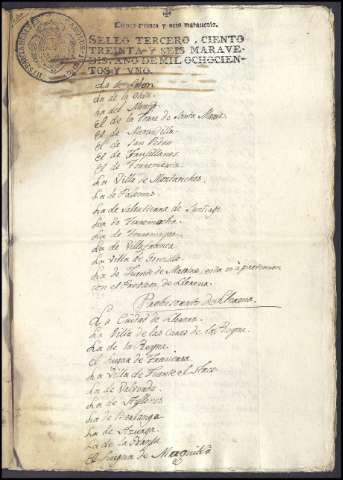 Ciento treinta y seis maravedis.
SELLO TERCERO, CIENTO
TREINTA Y SEIS MARAVE-
DIS, AÑO DE MIL OCHOCIEN-
TOS Y UNO.
La de
La de la Oliva
La del
El de la Torre de Santa Maria
El de
El de San Pedro
El de
El de Torremexia
La Villa de Montanchez
La de Palomas
La de Salvatierra de Santiago
La de Torremocha
La de
La de Villafranca
La Villa de
La de Fuente del Maestre, esta es á pretension
con el Provisor de Llerena
Provisorato de Llerena
La Ciudad de Llerena
La Villa de las Casas de la Reyna
La de la Reyna
El Lugar de Trasierra
La Villa de Fuente el Arco
La de Valverde
La de Ayllones
La de Berlanga
La de Azuaga
La de la Granja
El Lugar de Maguilla